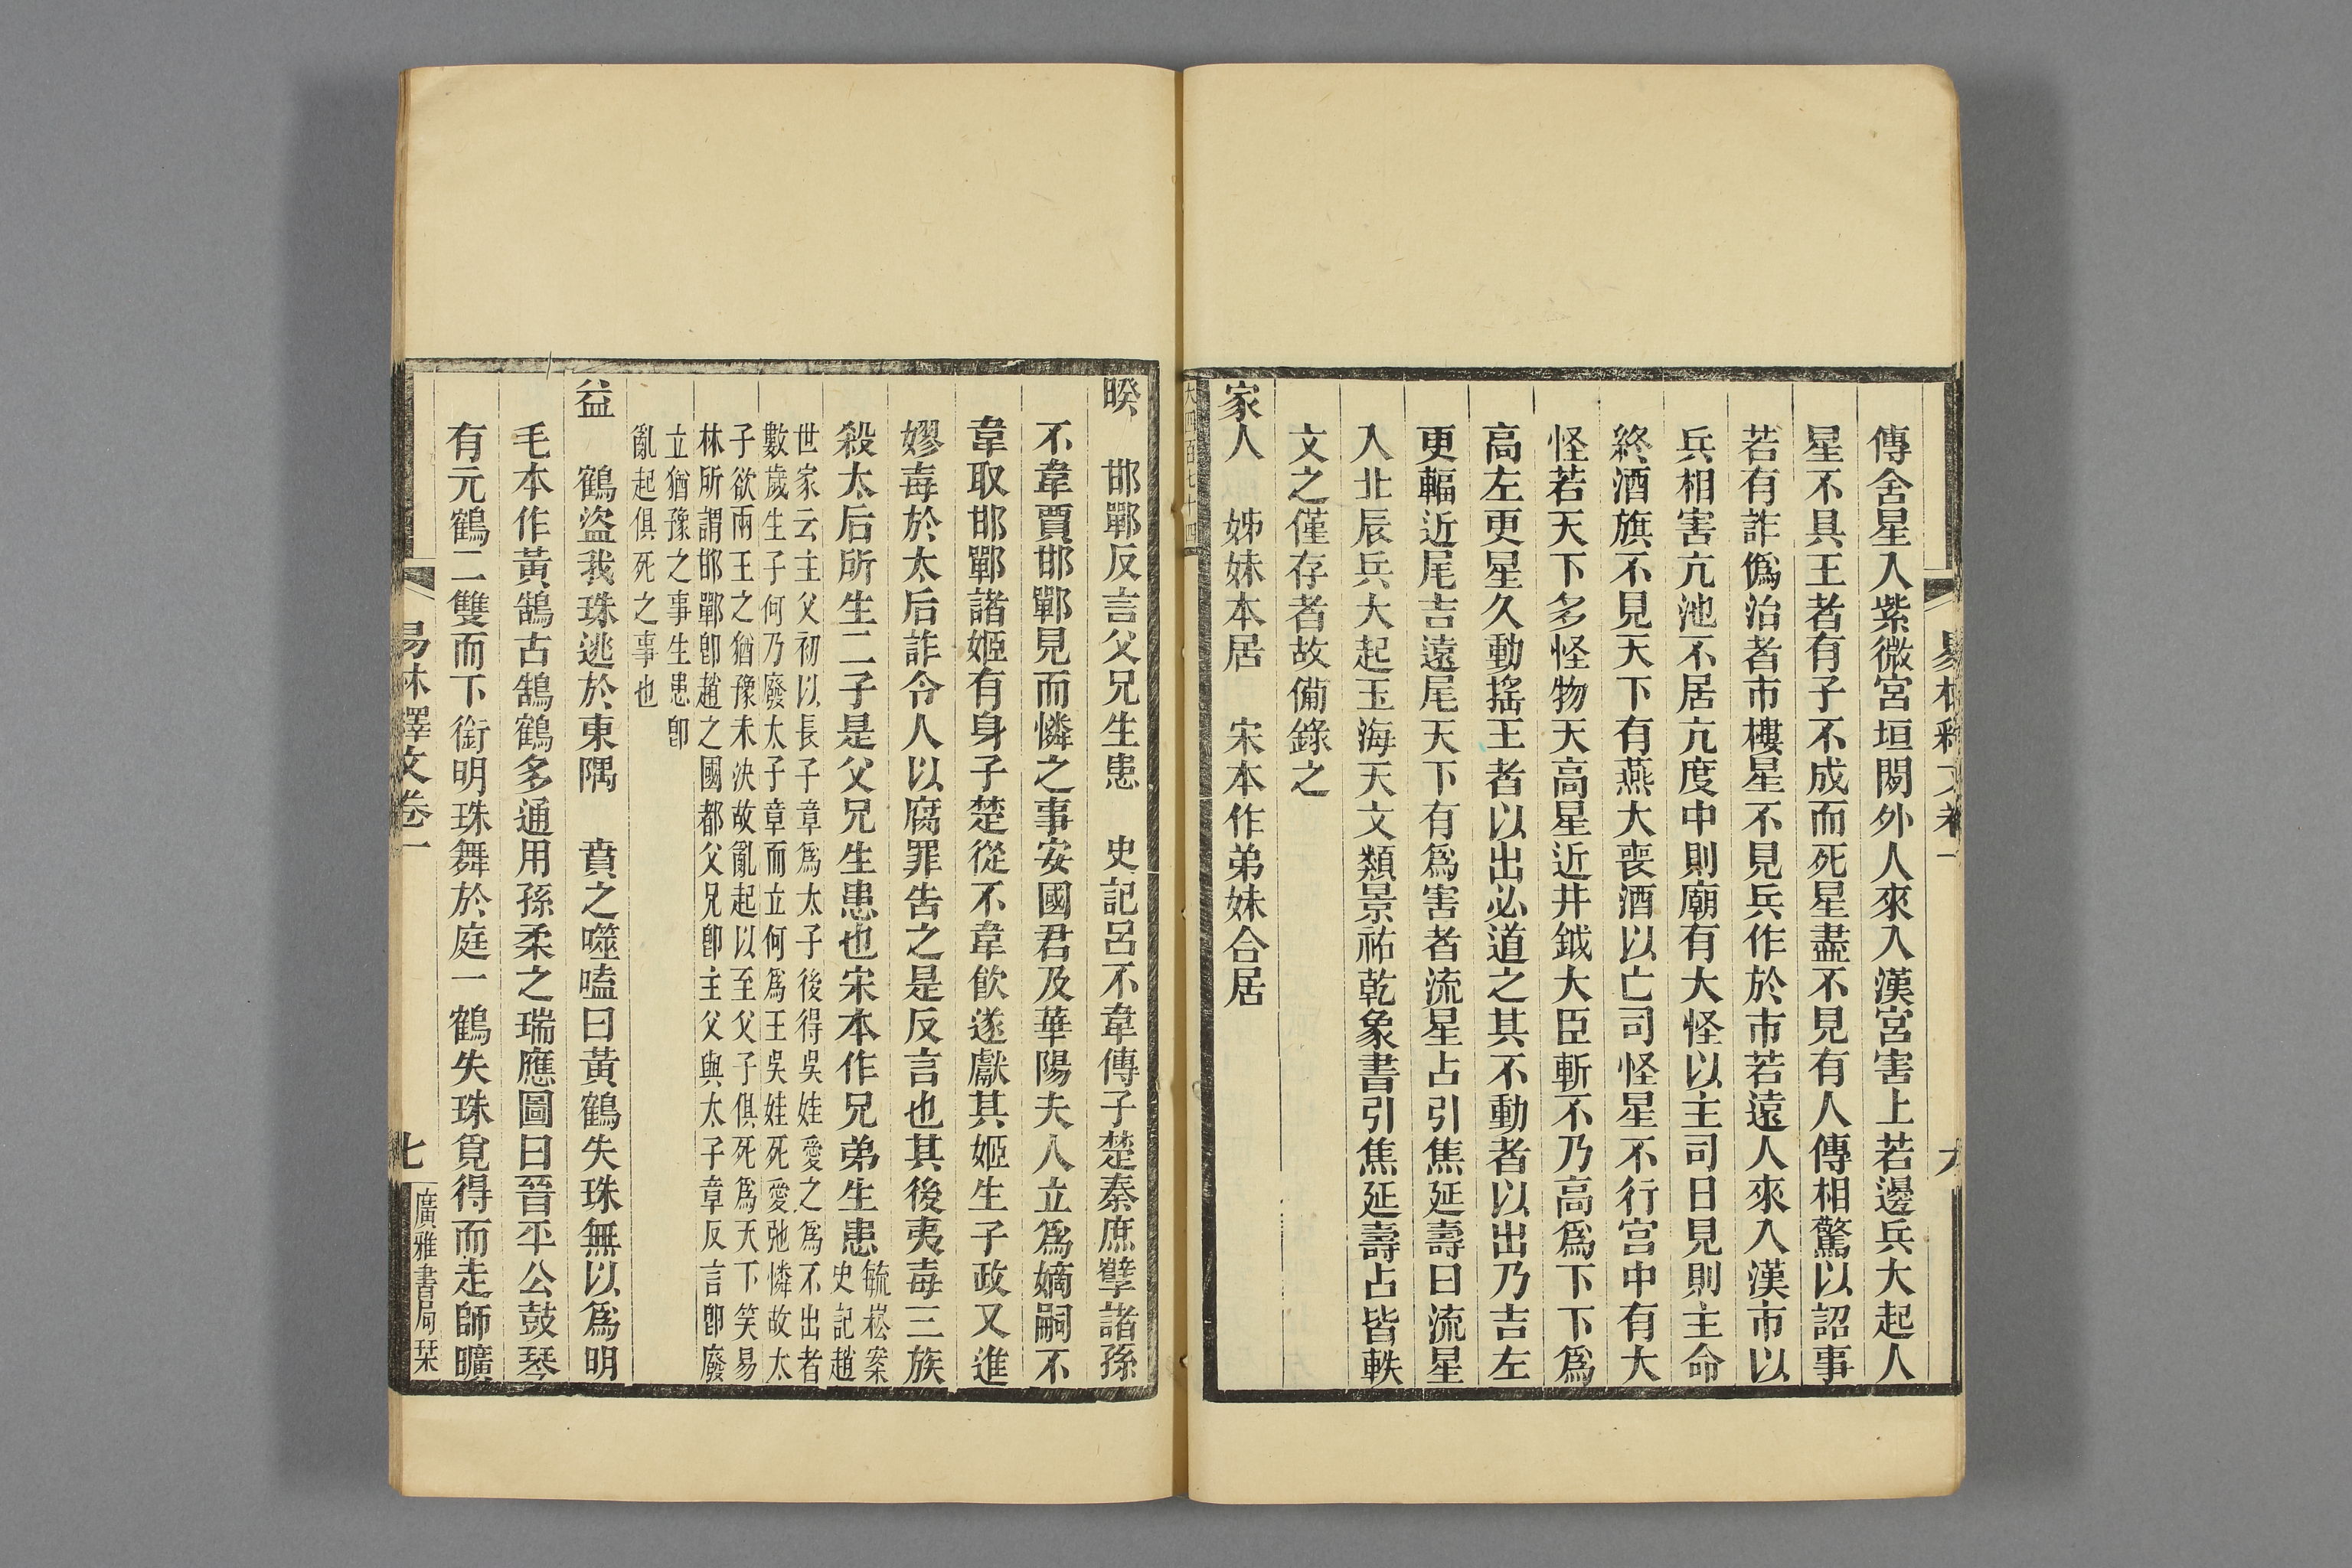 傳舍星入紫微宮垣閣外人來入漢宮害上若邊兵大起人
星不具王者有子不成而死星盡不見有人傳相驚以詔事
若有詐僞治者市樓星不見兵作於市若遠人來入漢市以
兵相害亢池不居亢度中則廟有大怪以主司日見則主命
終酒旗不見天下有燕大喪酒以亡司怪星不行宮中有大
怪若天下多怪物天高星近井鉞大臣斬不乃高爲下下爲
高左更星久動搖王者以出必道之其不動者以出乃吉左
更輻近尾吉遠尾天下有爲害者流星占引焦延壽曰流星
入北辰兵大起玉海天文類景祐乾象書引焦延壽占皆軼
文之僅存者故備錄之
家人　姊妹本居　宋本作弟妹合居
大四百七十四
睽　邯鄲反言父兄生患　史記呂不韋傳子楚秦庶孽諸孫
不韋賈邯鄲見而憐之事安國君及華陽夫人立爲嫡嗣不
韋取邯鄲諸姬有身子楚從不韋飲遂獻其姬生子政又進
嫪毐於太后詐令人以腐罪告之是反言也其後夷毐三族
殺太后所生二子是父兄生患也宋本作兄弟生患
毓崧案
史記趙
世家云主父初以長子章爲太子後得吳娃愛之爲不出者
數歲生子何乃廢太子章而立何爲王吳娃死愛弛憐故太
子欲兩王之猶豫未決故亂起以至父子俱死爲天下笑易
林所謂邯鄲卽趙之國都父兄卽主父與太子章反言卽廢
立猶豫之事生患卽
亂起俱死之事也
益　鶴盜我珠逃於東隅　賁之噬嗑曰黃鶴失珠無以爲明
毛本作黃鵠古鵠鶴多通用孫柔之瑞應圖曰晉平公鼓琴
有元鶴二雙而下銜明珠舞於庭一鶴失珠覓得而走師曠
易林釋文卷一
七
廣雅書局栞